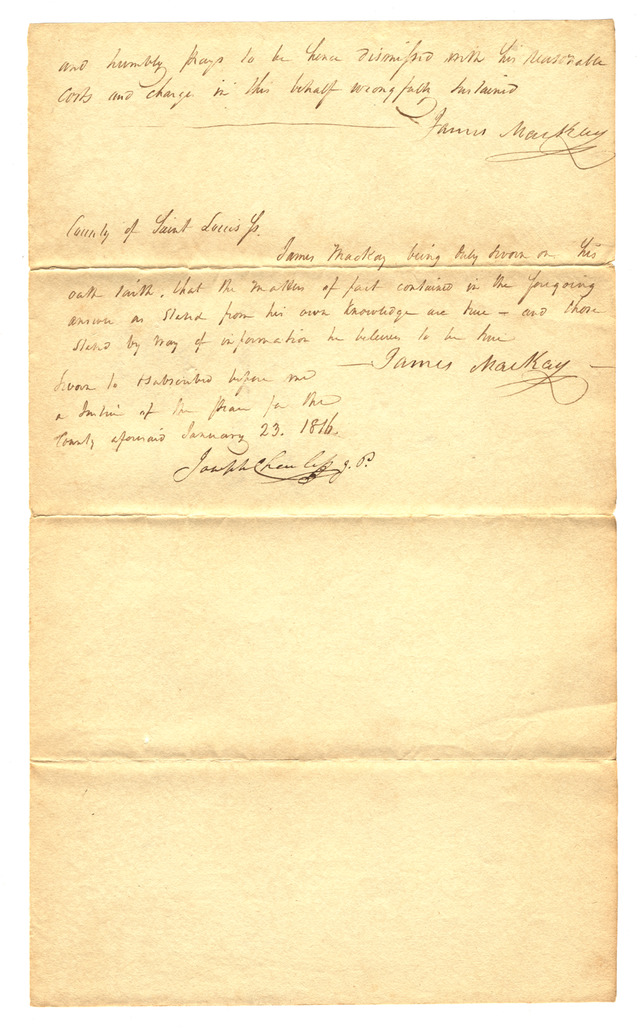 and humbly prays to be hence dismissed with his reasonable
costs and charges in this behalf wrongfully sustained
James MacKay
County of Saint Louis Ss.
James Mackay being duly sworn on his
oath saith, that the matters of fact contained in the foregoing
answer as stated from his own knowledge are true – and those
stated by way of information he believes to be true
— James MacKay —
Sworn to & subscribed before me
a Justice of the peace for the
County aforesaid January 23. 1816.
Joseph Charless J. P.